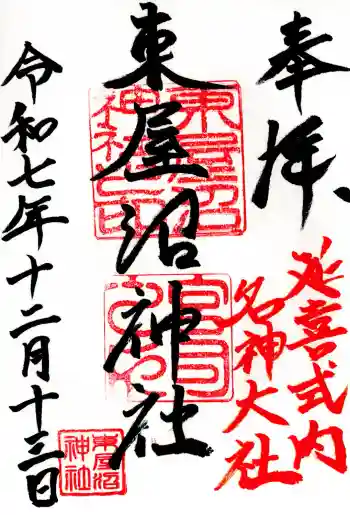 奉拝、
延喜式内
名神大社
東屋沼神社
東屋沼
神社之印
宮司
之印
令和七年十二月十三日
東屋沼
神社